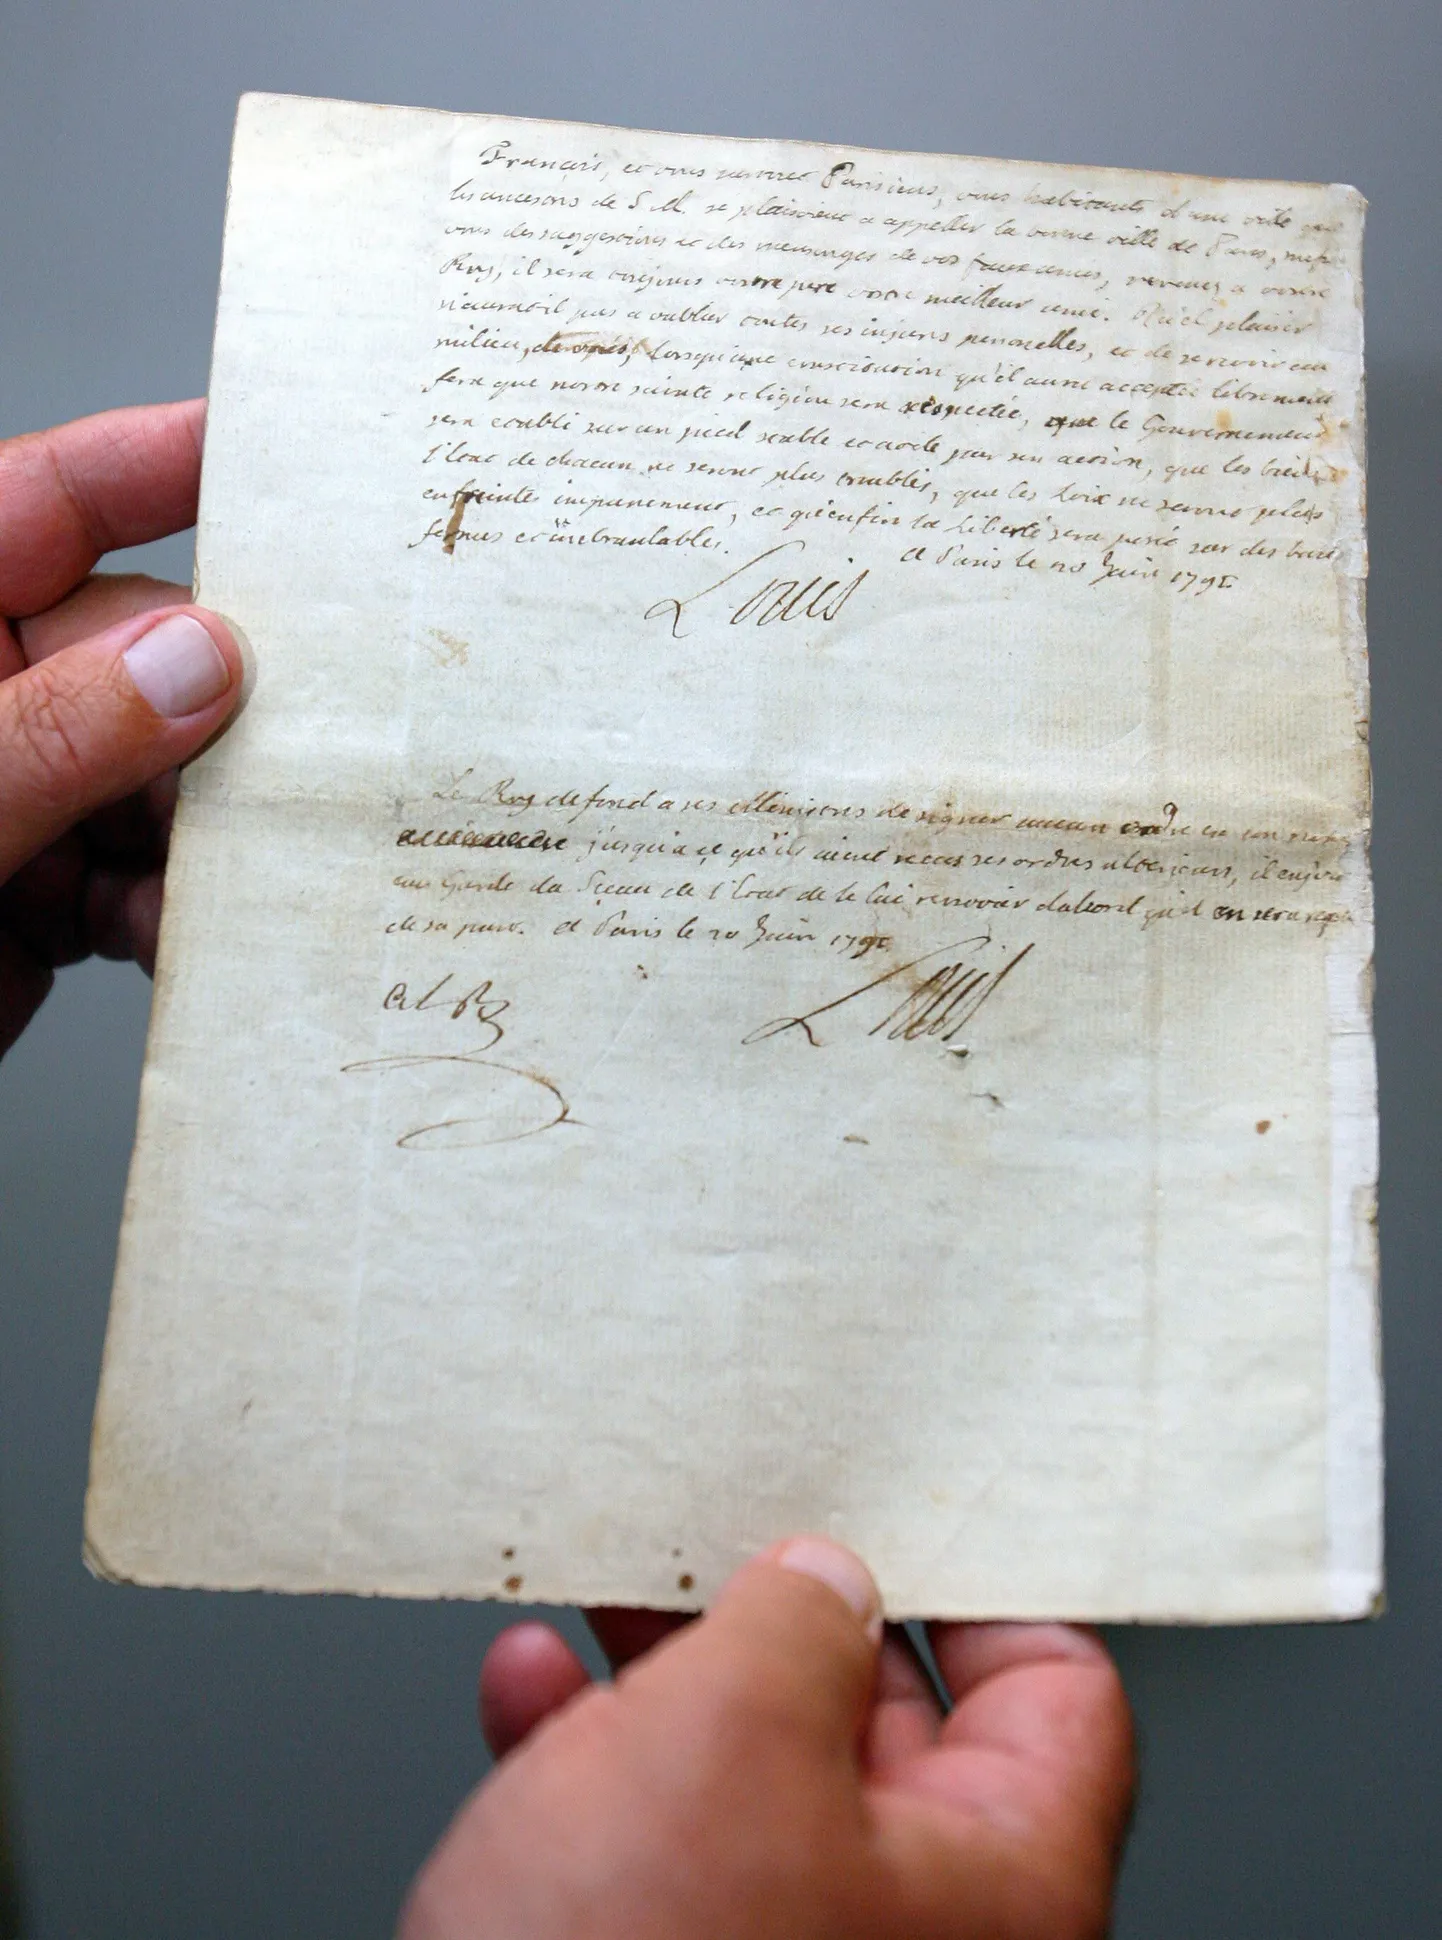 Francois, et vous surtout Parisiens, vous habitants d'une ville que
les ancestres de S. M. se plaisoient a appeller la bonne ville de Paris, mefi
vous des suggestions et des mensonges de vos faux amis, revenez a votre
Roy, il sera toujours votre pere votre meilleur ami. Quel plaisir
n'aura t'il pas a oublier toutes ses injures personelles, et de se revoir au
milieu de vous, lorsqu'une constitution qu'il aura acceptée librement
fera que notre sainte religion sera respectée, que le Gouvernement
sera etabli sur un pied stable et utile par son action, que les biens
l'etat de chacun ne seront plus troublés, que les Loix ne seront plus
enfreintes impunement, et qu'enfin la Liberté sera posée sur des bases
fermes et inebranlables.
A Paris le 20 Juin 1791
Louis
Le Roy defend a ses Ministres de signer aucun ordre en son nom
jusqu'a ce qu'ils aient recus ses ordres ulterieurs, il enjoint
au Garde du Sceau de l'Etat de le lui renvoier dabord qu'il en sera requis
de sa part. A Paris le 20 Juin 1791
Louis